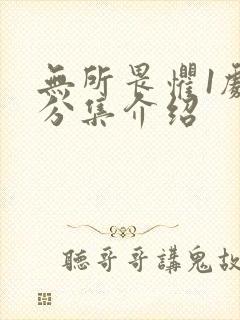 無所畏懼1劇
分集介紹
聽哥哥講鬼故